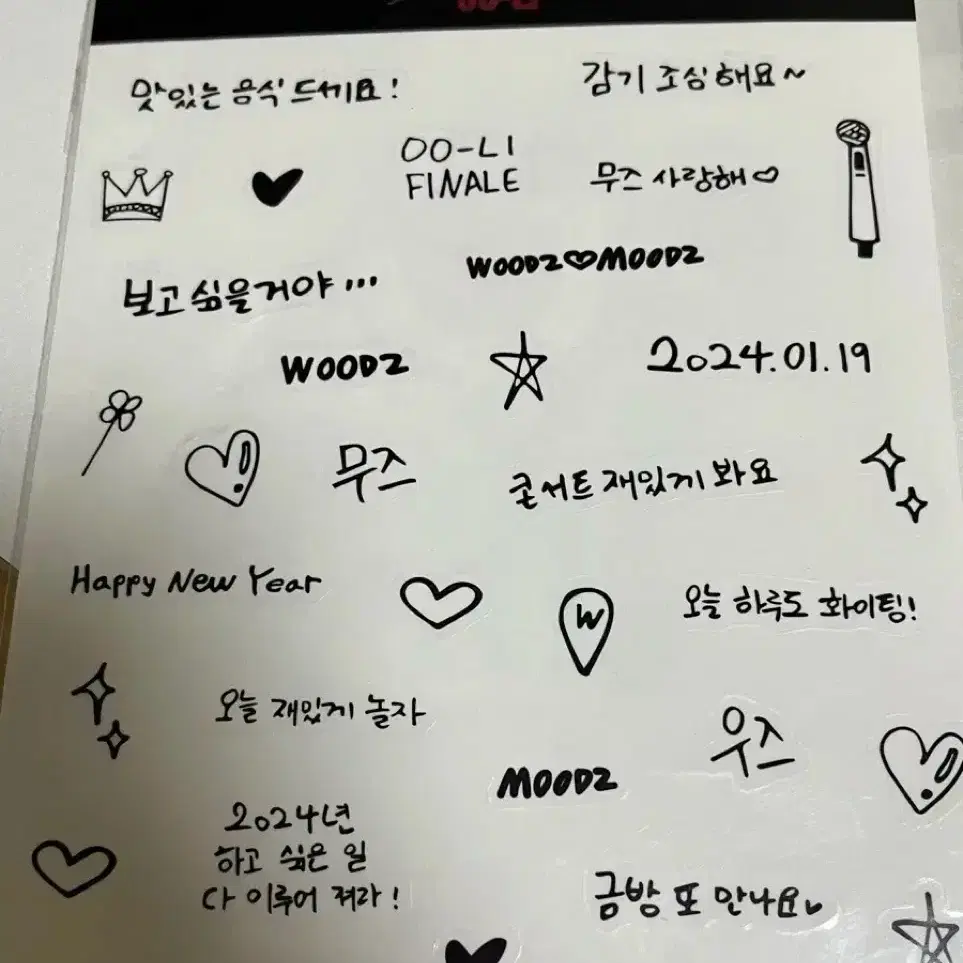 OO-LI
맛있는 음식 드세요!
감기 조심해요~
OO-LI
FINALE
무즈 사랑해♡
WOODZ♡MOODZ
보고싶을거야...
WOODZ
2024.01.19
무즈
콘서트 재밌게 봐요
Happy New Year
W
오늘 하루도 화이팅!
오늘 재밌게 놀자
우즈
MOODZ
2024년
하고 싶은 일
다 이루어 져라!
금방 또 만나요♥